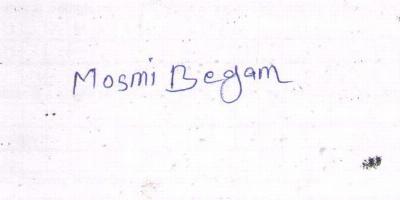 Mosmi Begam